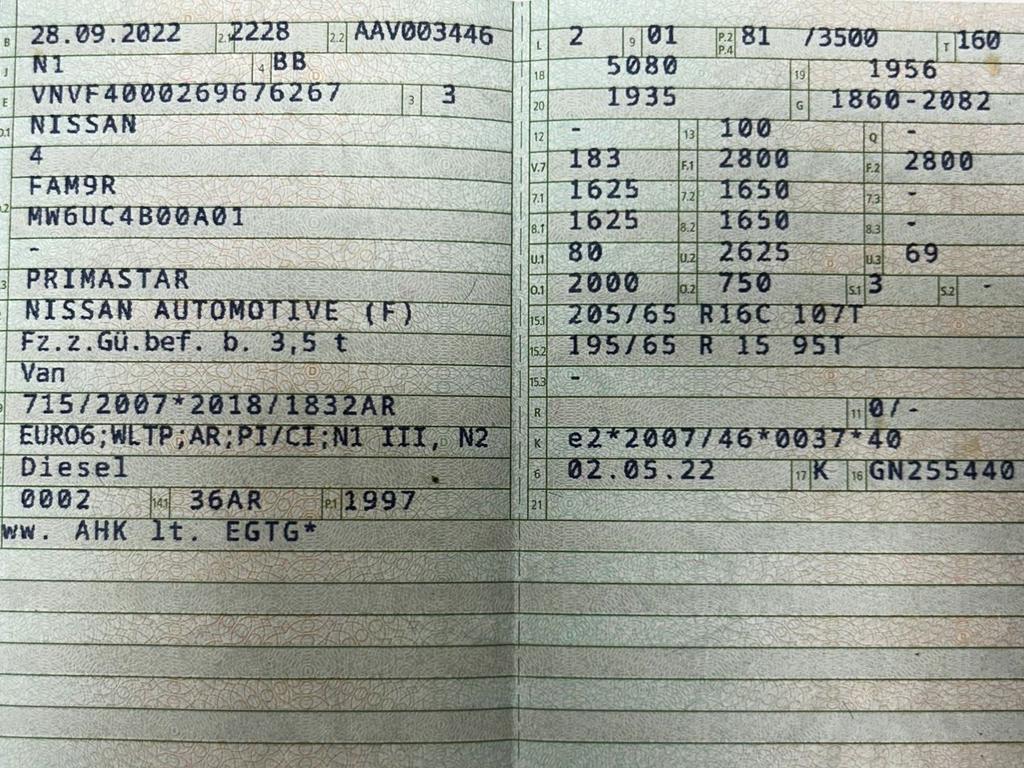 B 28.09.2022 2.1 2228 2.2 AAV003446
J N1 4 BB
E VNVF4000269676267 3 3
D.1 NISSAN
4
FAM9R
D.2 MW6UC4B00A01
-
3 PRIMASTAR
NISSAN AUTOMOTIVE (F)
Fz.z.Gü.bef. b. 3,5 t
Van
9 715/2007*2018/1832AR
EURO6;WLTP;AR;PI/CI;N1 III, N2
Diesel
0002 14.1 36AR P.1 1997
ww. AHK lt. EGTG*
L 2 9 01 P.2 P.4 81 /3500 T 160
18 5080 19 1956
20 1935 G 1860-2082
12 - 13 100 Q -
V.7 183 F.1 2800 F.2 2800
7.1 1625 7.2 1650 7.3 -
8.1 1625 8.2 1650 8.3 -
U.1 80 U.2 2625 U.3 69
O.1 2000 O.2 750 S.1 3 S.2 -
15.1 205/65 R16C 107T
15.2 195/65 R 15 95T
15.3 -
R 11 0/-
K e2*2007/46*0037*40
6 02.05.22 17 K 16 GN255440
21